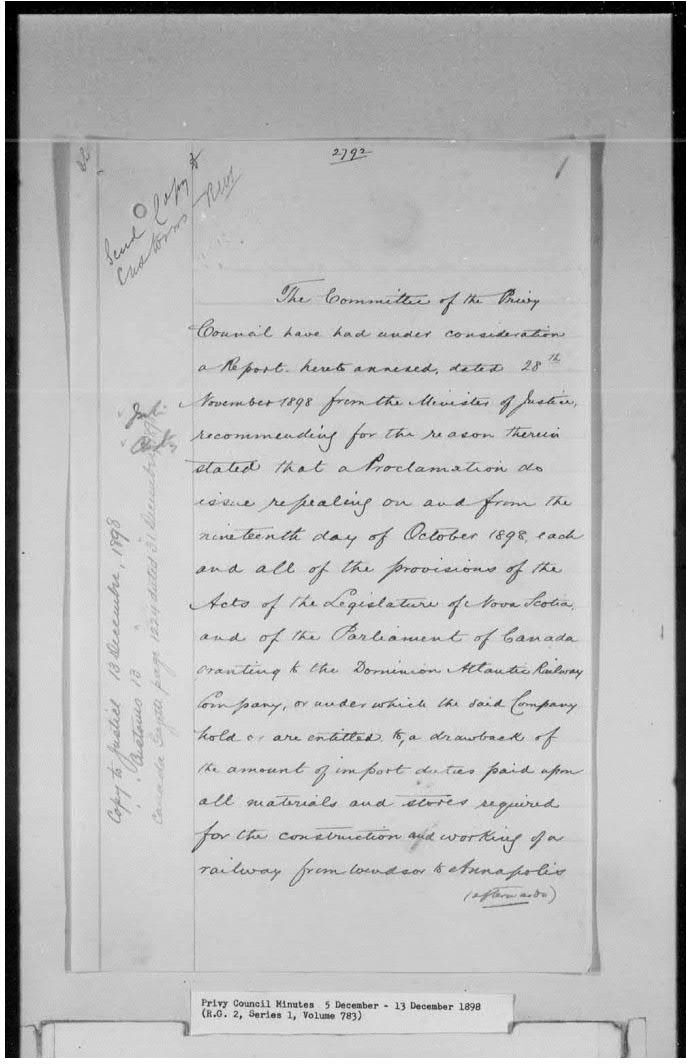 2792
Send Copy to
Customs
The Committee of the Privy
Council have had under consideration
a Report. hereto annexed, dated 28th
November 1898 from the Minister of Justice,
recommending for the reason therein
stated that a Proclamation do
issue repealing on and from the
nineteenth day of October 1898, each
and all of the provisions of the
Acts of the Legislature of Nova Scotia,
and of the Parliament of Canada
granting to the Dominion Atlantic Railway
Company, or under which the said Company
hold or are entitled to, a drawback of
the amount of import duties paid upon
all materials and stores required
for the construction and working of a
railway from Windsor to Annapolis
(afterwards)
Copy to Justice 13 December, 1898
" " Customs 13 " "
Canada Gazette page 1224 dated 31 December
Privy Council Minutes 5 December - 13 December 1898
(R.G. 2, Series 1, Volume 783)